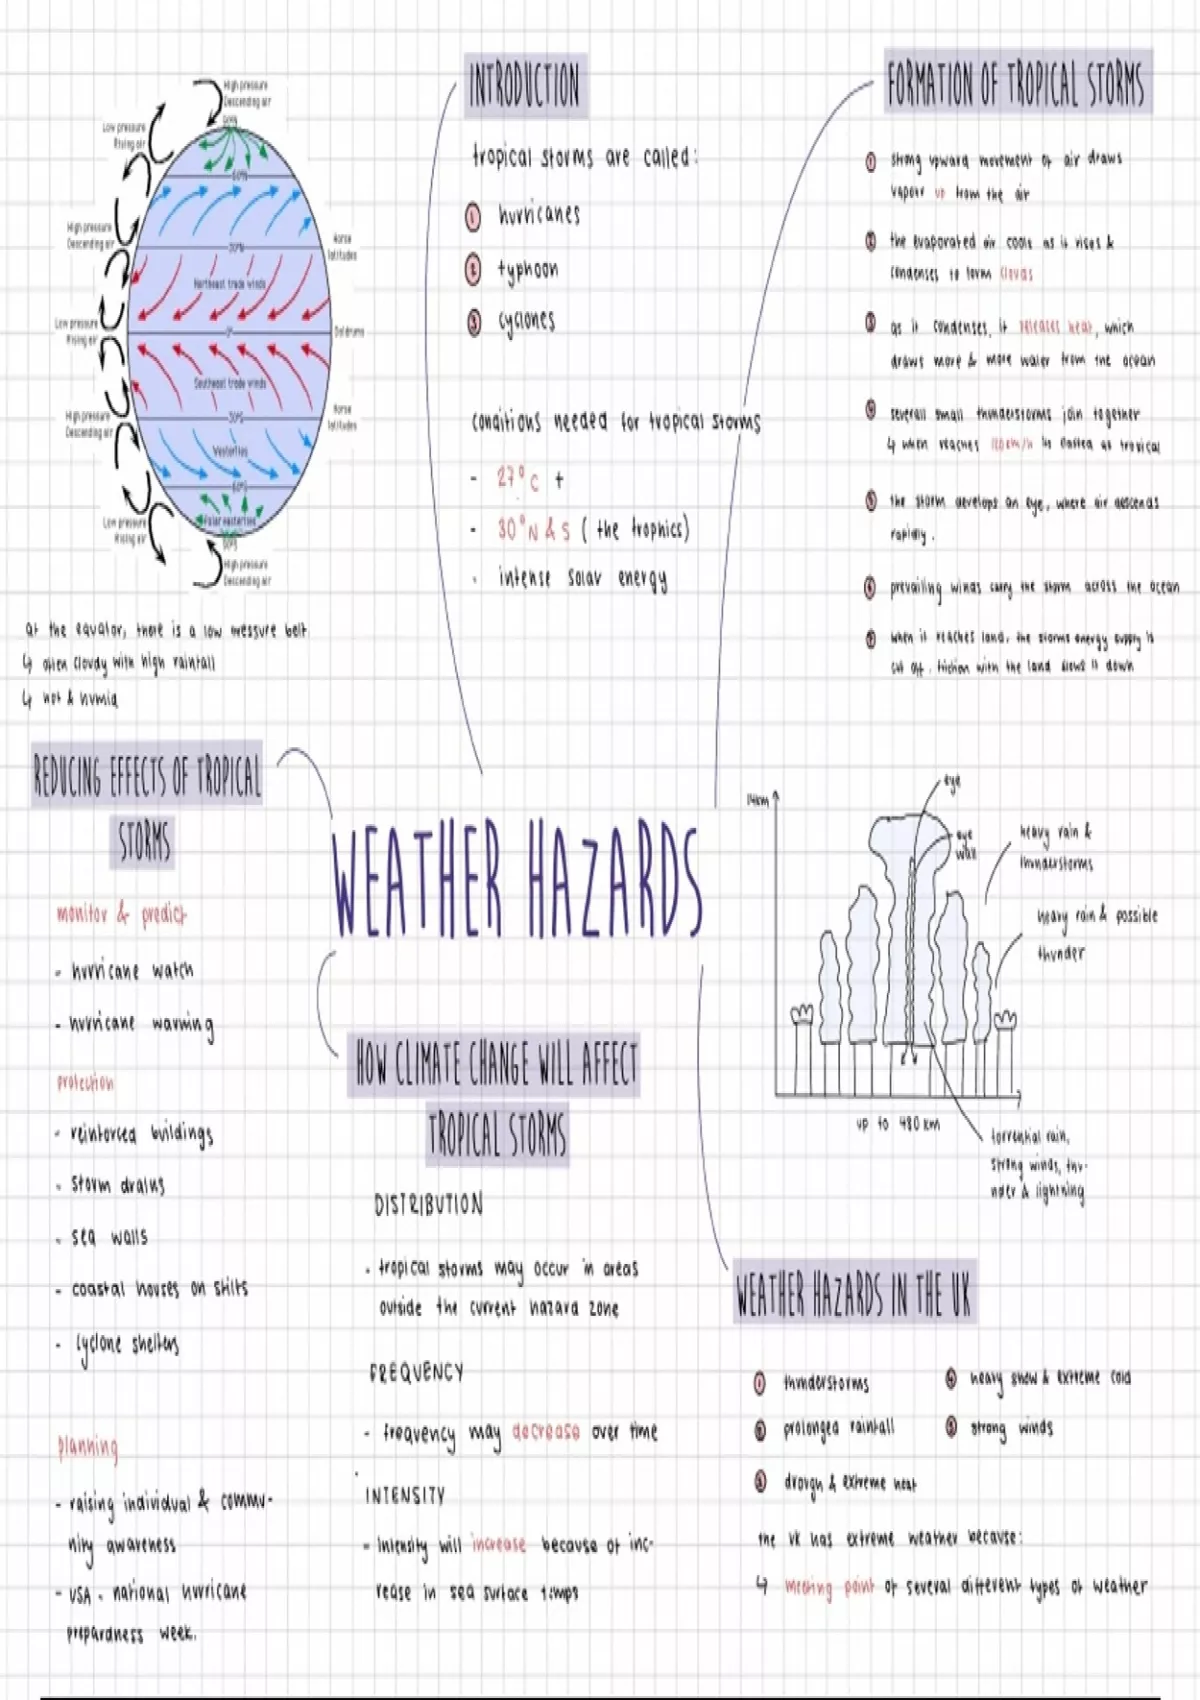 High pressure
Descending air
Low pressure
Rising air
90°N
60°N
High pressure
Descending air
30°N
Horse
latitudes
Northeast trade winds
Low pressure
Rising air
0°
Doldrums
Southeast trade winds
High pressure
Descending air
30°S
Horse
latitudes
Westerlies
60°S
Low pressure
Rising air
Polar easterlies
90°S
High pressure
Descending air
at the equator, there is a low pressure belt.
↳ often cloudy with high rainfall
↳ hot & humid
INTRODUCTION
tropical storms are called:
① hurricanes
② typhoon
③ cyclones
conditions needed for tropical storms
- 27°C +
- 30°N & S ( the trophics)
- intense solar energy
FORMATION OF TROPICAL STORMS
① strong upward movement of air draws
vapour up from the air
② the evaporated air cools as it rises &
condenses to form clouds
③ as it condenses, it releases heat, which
draws more & more water from the ocean
④ severall small thunderstorms join together
↳ when reaches 120km/h is classed as tropical
⑤ the storm develops an eye, where air descends
rapidly.
⑥ prevailing winds carry the storm across the ocean
⑦ when it reaches land, the storms energy supply is
cut off. friction with the land slows it down
WEATHER HAZARDS
REDUCING EFFECTS OF TROPICAL
STORMS
monitor & predict
- hurricane watch
- hurricane warning
protection
- reinforced buildings
- storm drains
- sea walls
- coastal houses on stilts
- cyclone shelters
planning
- raising individual & commu-
nity awareness
- USA - national hurricane
prepardness week.
HOW CLIMATE CHANGE WILL AFFECT
TROPICAL STORMS
DISTRIBUTION
- tropical storms may occur in areas
outside the current hazard zone
FREQUENCY
- frequency may decrease over time
INTENSITY
- Intensity will increase because of inc-
rease in sea surface temps
14km
eye
eye
wall
heavy rain &
thunderstorms
heavy rain & possible
thunder
up to 480 km
torrential rain,
strong winds, thu-
nder & lightning
WEATHER HAZARDS IN THE UK
① thunderstorms
② prolonged rainfall
③ drough & extreme heat
④ heavy snow & extreme cold
⑤ strong winds
the UK has extreme weather because:
↳ meeting point of several different types of weather